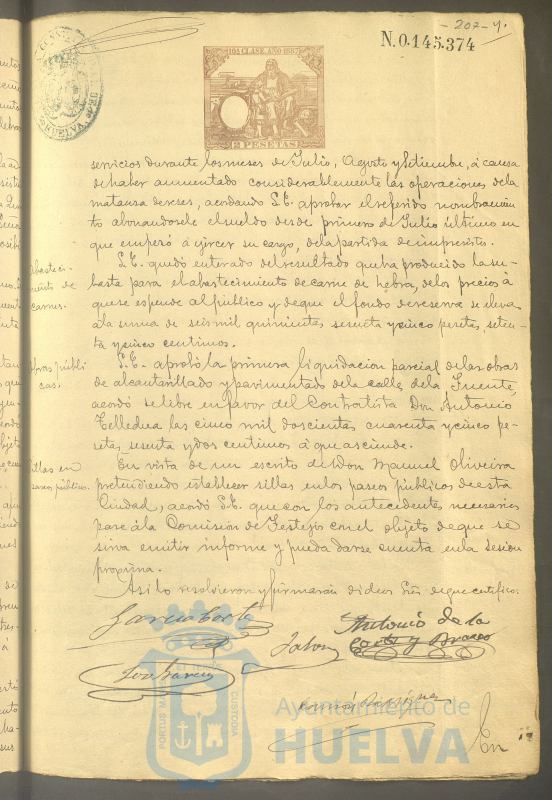 - 207 - y.
N. 0.145.374
10ª CLASE. AÑO 1887
2 PESETAS
HUELVA
servicios durante los meses de Julio, Agosto y Setiembre, á causa
de haber aumentado considerablemente las operaciones de la
matanza de reses, acordando S.E. aprobar el referido nombramien
to abonandosele el sueldo desde primero de Julio último en
que empezó á ejercer su cargo, de la partida de imprevistos.
S.E. quedó enterado del resultado que ha producido la su-
basta para el abastecimiento de carne de hebra, de los precios á
que se espende al público y de que el fondo de reserva se eleva
á la suma de seis mil quinientas sesenta y cinco pesetas, seten-
ta y cinco centimos.
Abasteci-
miento de
carnes.
S.E. aprobó la primera liquidacion parcial de las obras
de alcantarillado y pavimentado de la calle de la Fuente,
acordó se libre en favor del Contratista Don Antonio
Telledua las cinco mil doscientas cuarenta y cinco pe-
setas, sesenta y dos centimos á que asciende.
Obras públi
cas.
En vista de un escrito de Don Manuel Oliveira
pretendiendo establecer sillas en los paseos públicos de esta
Ciudad, acordó S.E. que con los antecedentes necesarios
pase á la Comision de Festejos con el objeto de que se
sirva emitir informe y pueda darse cuenta en la sesion
proxima.
Sillas en
paseos públicos.
Asi lo resolvieron y firmarán dichos Sres. de que certifico:
Garcia
Antonio de la
Corte y
Garcia
En
PORTUS MARIS ET TERRAE CUSTODIA
Ayuntamiento de
HUELVA